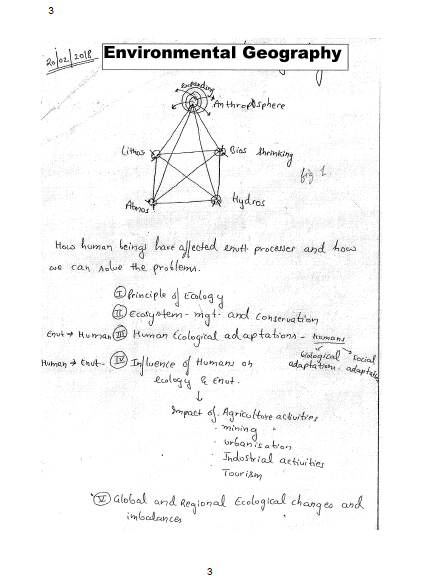 3
20/02/2018
Environmental Geography
expanding
Anthrosphere
Lithos
Bios shrinking
fig 1
Atmos
Hydros
How human beings have affected envtl. processes and how
we can solve the problems.
I Principle of Ecology
II Ecosystem - mgt. and conservation
Envt → Human III Human Ecological adaptations - humans
biological adaptation. Social adaptation
Human → Envt- IV Influence of Humans on
ecology & Envt.
↓
Impact of. Agriculture activities
· mining "
· urbanisation
· Industrial activities
Tourism
V Global and Regional Ecological changes and
imbalances
3